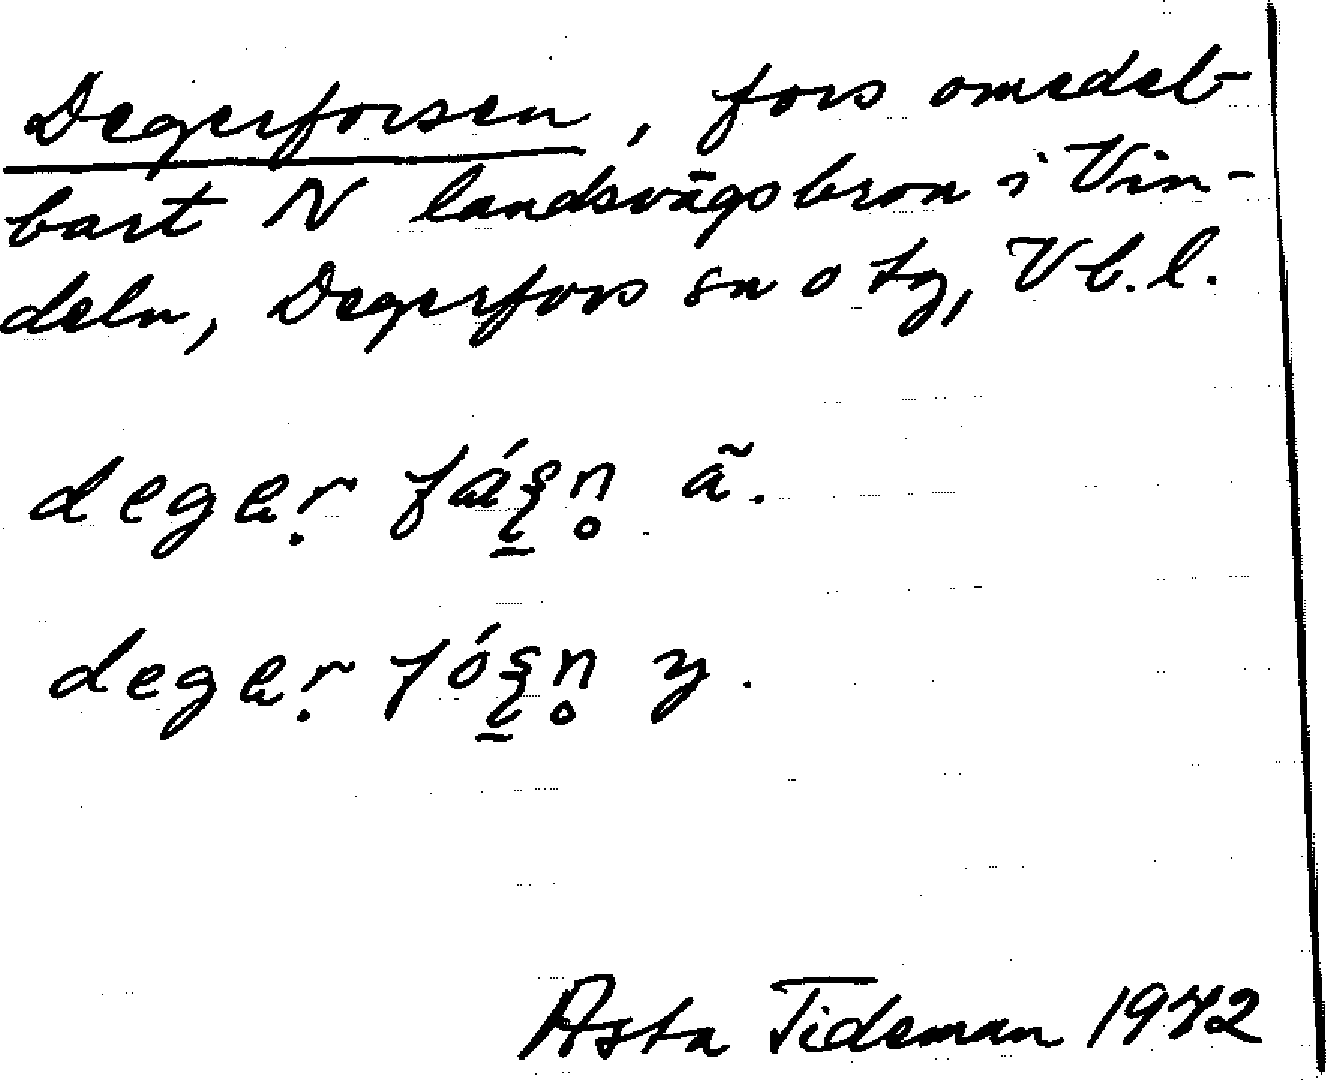 Degerforsen, fors omedel-
bart N landsvägsbron i Vin-
deln, Degerfors sn o tg, Vb.l.
ã.
y.
Asta Tideman 1972